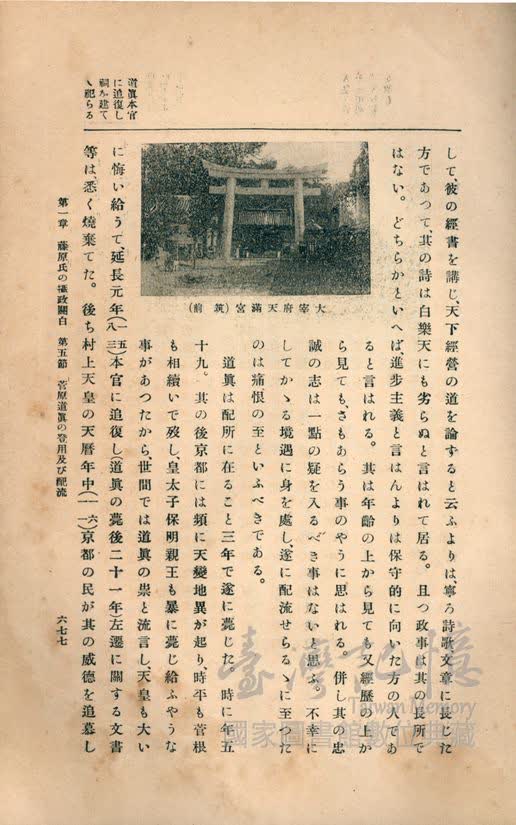 道眞本官
に追復し
祠を建て
ゝ祀らる
して、彼の經書を講じ、天下經營の道を論ずると云ふよりは、寧ろ詩歌文章に長じた
方であつて其の詩は白樂天にも劣らぬと言はれて居る。且つ政事は其の長所で
はない。どちらかといへば、進步主義と言はんよりは保守的に向いた方の人であ
ると言はれる。其は年齡の上から見ても又經歷の上か
ら見てもさもあらう事のやうに思はれる 併し其の忠
誠の志は一點の疑を入るべき事はないと思ふ。不幸に
してかゝる境遇に身を處し、遂に配流せらるゝに至つた
のは痛恨の至といふべきである。
道眞は配所に在ること三年で遂に薨じた 時に年五
十九。其の後京都には頻に天變地異が起り、時平も菅根
も相續いで歿し、皇太子保明親王も暴に薨じ給ふやうな
事があつたから、世間では道眞の祟と流言し、天皇も大い
に悔い給うて、延長元年(一五八三)本官に追復し(道眞の薨後二十一年)左遷に關する文書
等は、悉く燒棄てた。後ち村上天皇の天曆年中(一六一一)京都の民が其の威德を追慕し
大宰府天滿宮(筑前)
第一章 藤原氏の攝政關白 第五節 菅原道眞の登用及び配流
六七七
臺灣記憶
Taiwan Memory
國家圖書館數位典藏